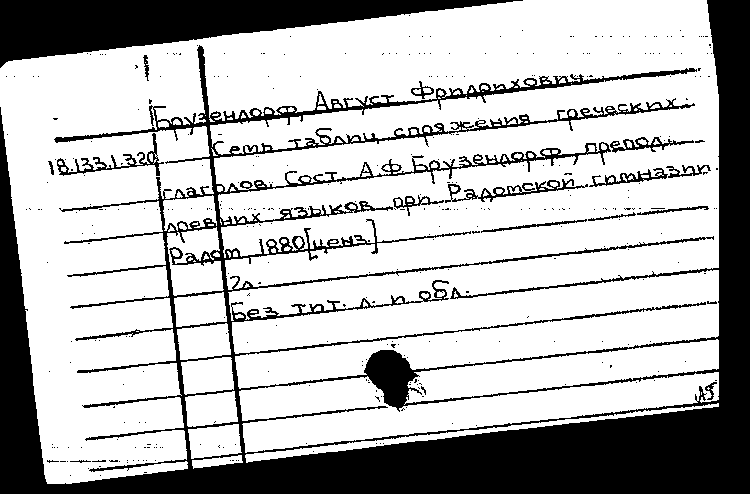 Брузендорф, Август Фридрихович.
18.133.1.320
Семь таблиц спряжения греческих
глаголов. Сост. А.Ф. Брузендорф, препод.
древних языков при Радомской гимназии.
Радом, 1880 [ценз.]
2л.
Без тит. л. и обл.
АБ